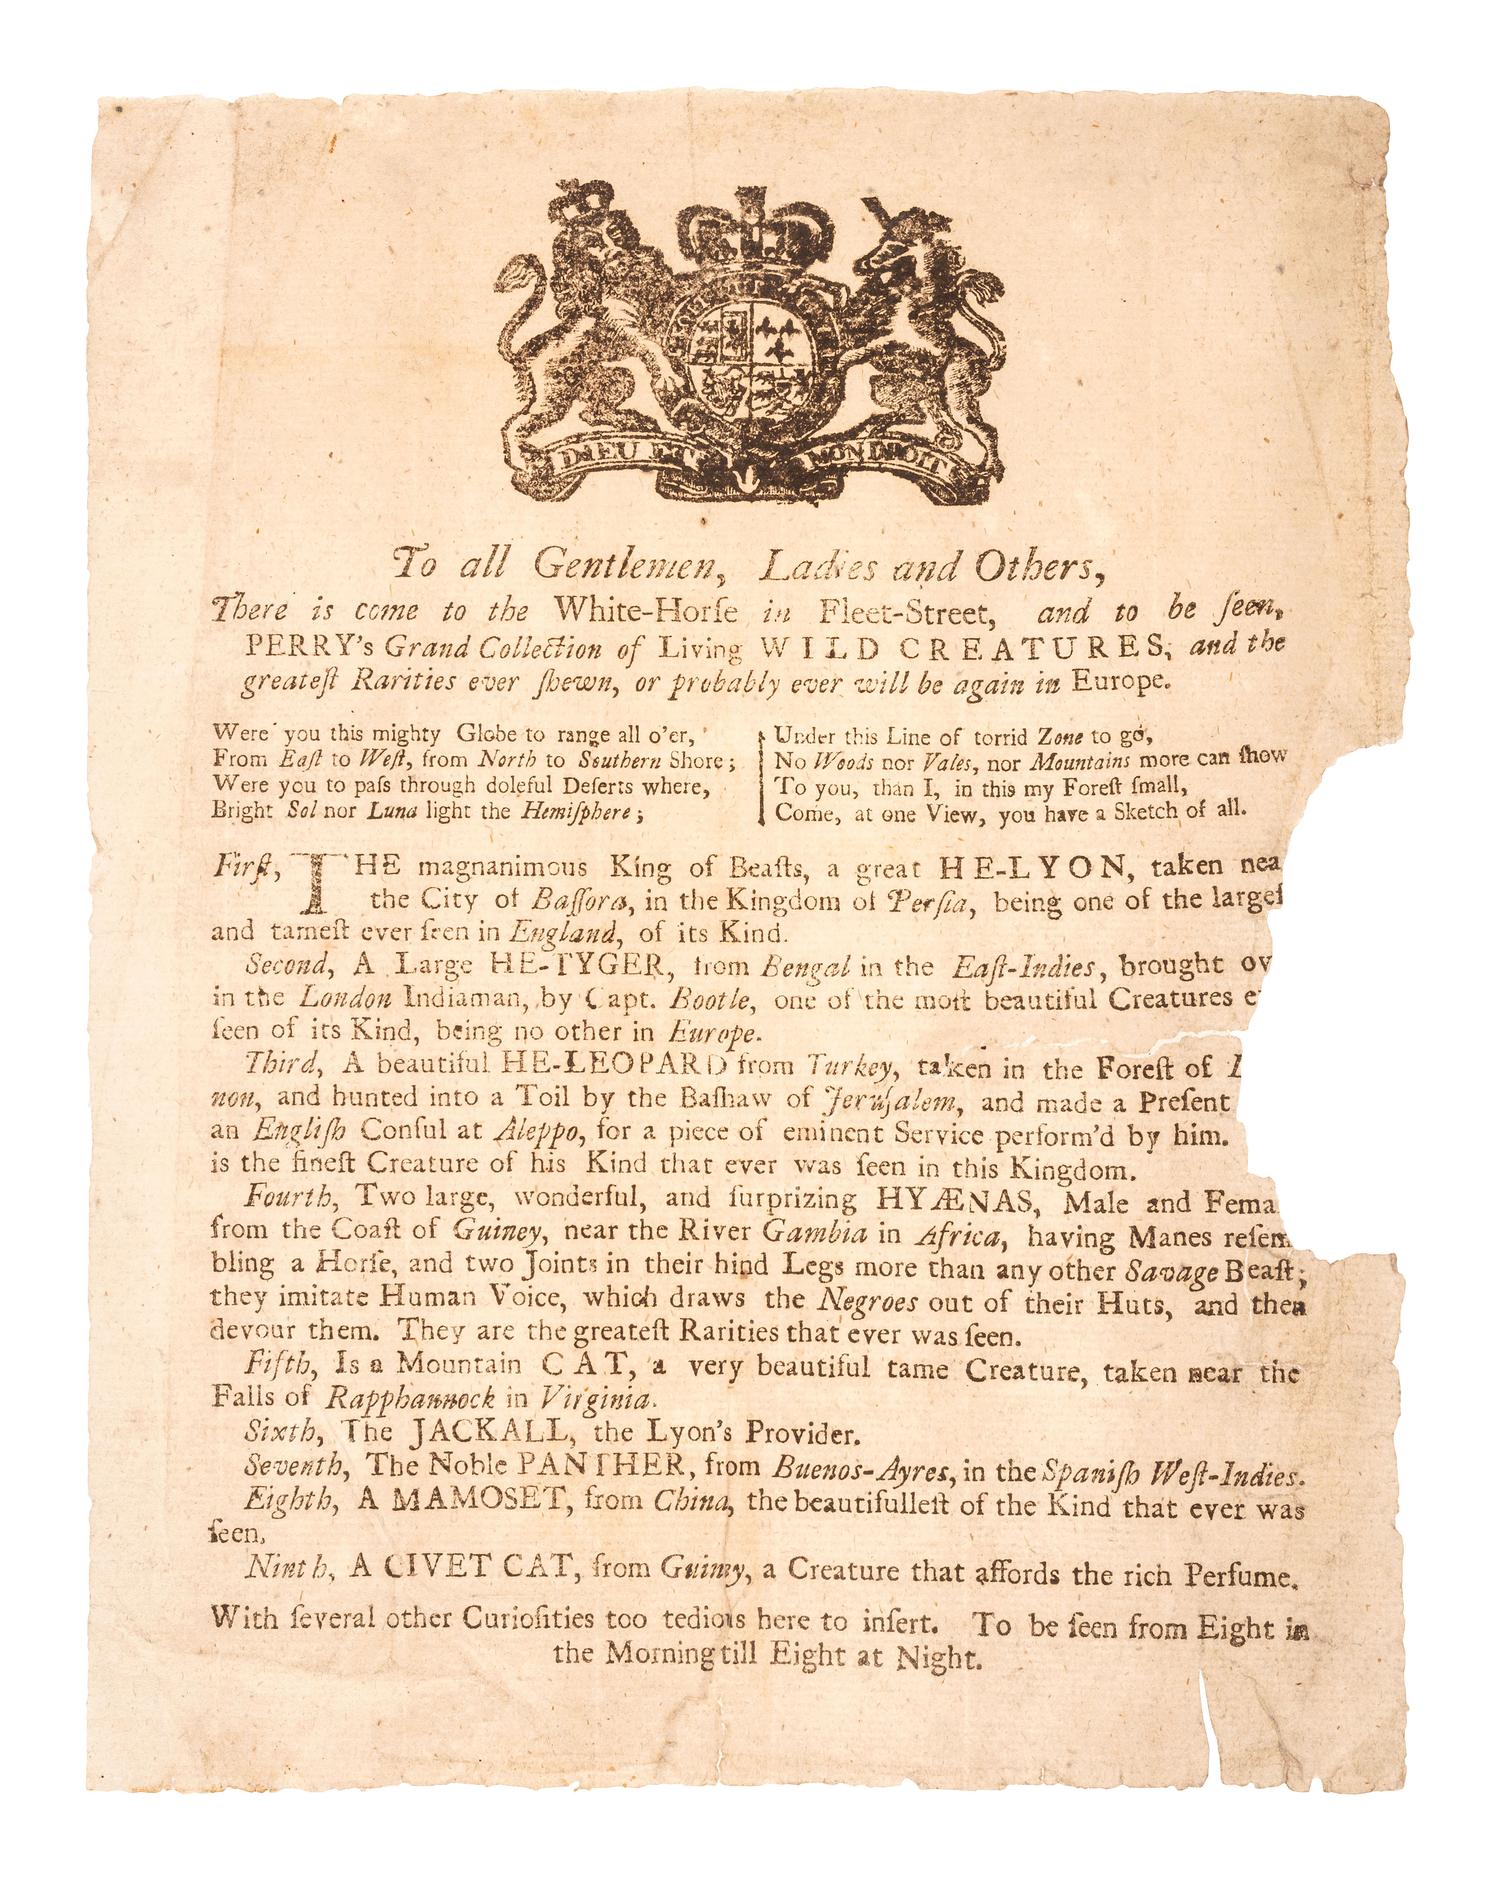 DIEU ET MON DROIT
To all Gentlemen, Ladies and Others,
There is come to the White-Horſe in Fleet-Street, and to be ſeen,
PERRY's Grand Collection of Living WILD CREATURES, and the
greateſt Rarities ever ſhewn, or probably ever will be again in Europe.
Were you this mighty Globe to range all o'er,
From Eaſt to Weſt, from North to Southern Shore;
Were you to paſs through doleful Deſerts where,
Bright Sol nor Luna light the Hemiſphere;
Under this Line of torrid Zone to go,
No Woods nor Vales, nor Mountains more can ſhow
To you, than I, in this my Foreſt ſmall,
Come, at one View, you have a Sketch of all.
Firſt, THE magnanimous King of Beaſts, a great HE-LYON, taken nea
the City of Baſſora, in the Kingdom of Perſia, being one of the largeſ
and tameſt ever ſeen in England, of its Kind.
Second, A Large HE-TYGER, from Bengal in the Eaſt-Indies, brought ov
in the London Indiaman, by Capt. Bootle, one of the moſt beautiful Creatures e
ſeen of its Kind, being no other in Europe.
Third, A beautiful HE-LEOPARD from Turkey, taken in the Foreſt of L
non, and hunted into a Toil by the Baſhaw of Jeruſalem, and made a Preſent
an Engliſh Conſul at Aleppo, for a piece of eminent Service perform'd by him.
is the fineſt Creature of his Kind that ever was ſeen in this Kingdom.
Fourth, Two large, wonderful, and ſurprizing HYÆNAS, Male and Fema
from the Coaſt of Guiney, near the River Gambia in Africa, having Manes reſem
bling a Horſe, and two Joints in their hind Legs more than any other Savage Beaſt;
they imitate Human Voice, which draws the Negroes out of their Huts, and then
devour them. They are the greateſt Rarities that ever was ſeen.
Fifth, Is a Mountain CAT, a very beautiful tame Creature, taken near the
Falls of Rapphannock in Virginia.
Sixth, The JACKALL, the Lyon's Provider.
Seventh, The Noble PANTHER, from Buenos-Ayres, in the Spaniſh Weſt-Indies.
Eighth, A MAMOSET, from China, the beautifulleſt of the Kind that ever was
ſeen.
Ninth, A CIVET CAT, from Guiney, a Creature that affords the rich Perfume.
With ſeveral other Curioſities too tedious here to inſert. To be ſeen from Eight in
the Morning till Eight at Night.